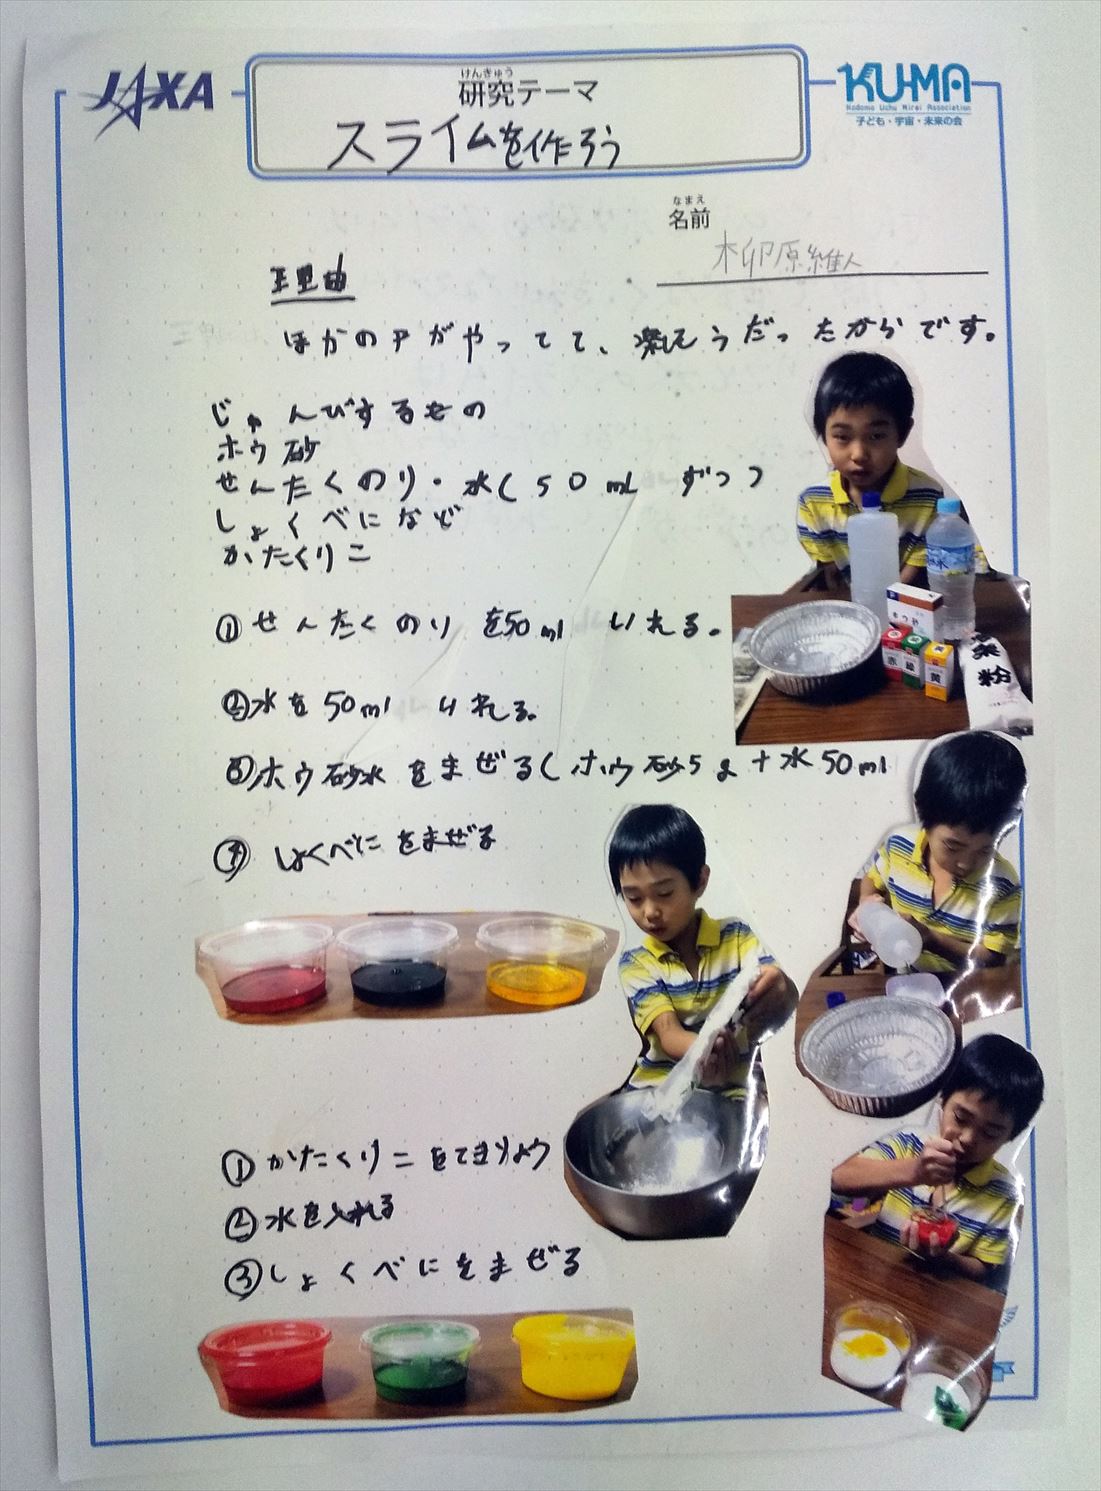 JAXA
けんきゅう
研究テーマ
スライムを作ろう
KU-MA
Kodomo Uchu Mirai Association
子ども・宇宙・未来の会
なまえ
名前
柳原維人
理由
ほかの がやってて、楽しそうだったからです。
じゅんびするもの
ホウ砂
せんたくのり・水(50ml ずつ
しょくべになど
かたくりこ
①せんたくのりを50ml いれる。
②水を50ml いれる。
③ホウ砂水をまぜる(ホウ砂5g+水50ml
④しょくべにをまぜる
赤
緑
黄
粉
①かたくりこをてきりょう
②水を入れる
③しょくべにをまぜる